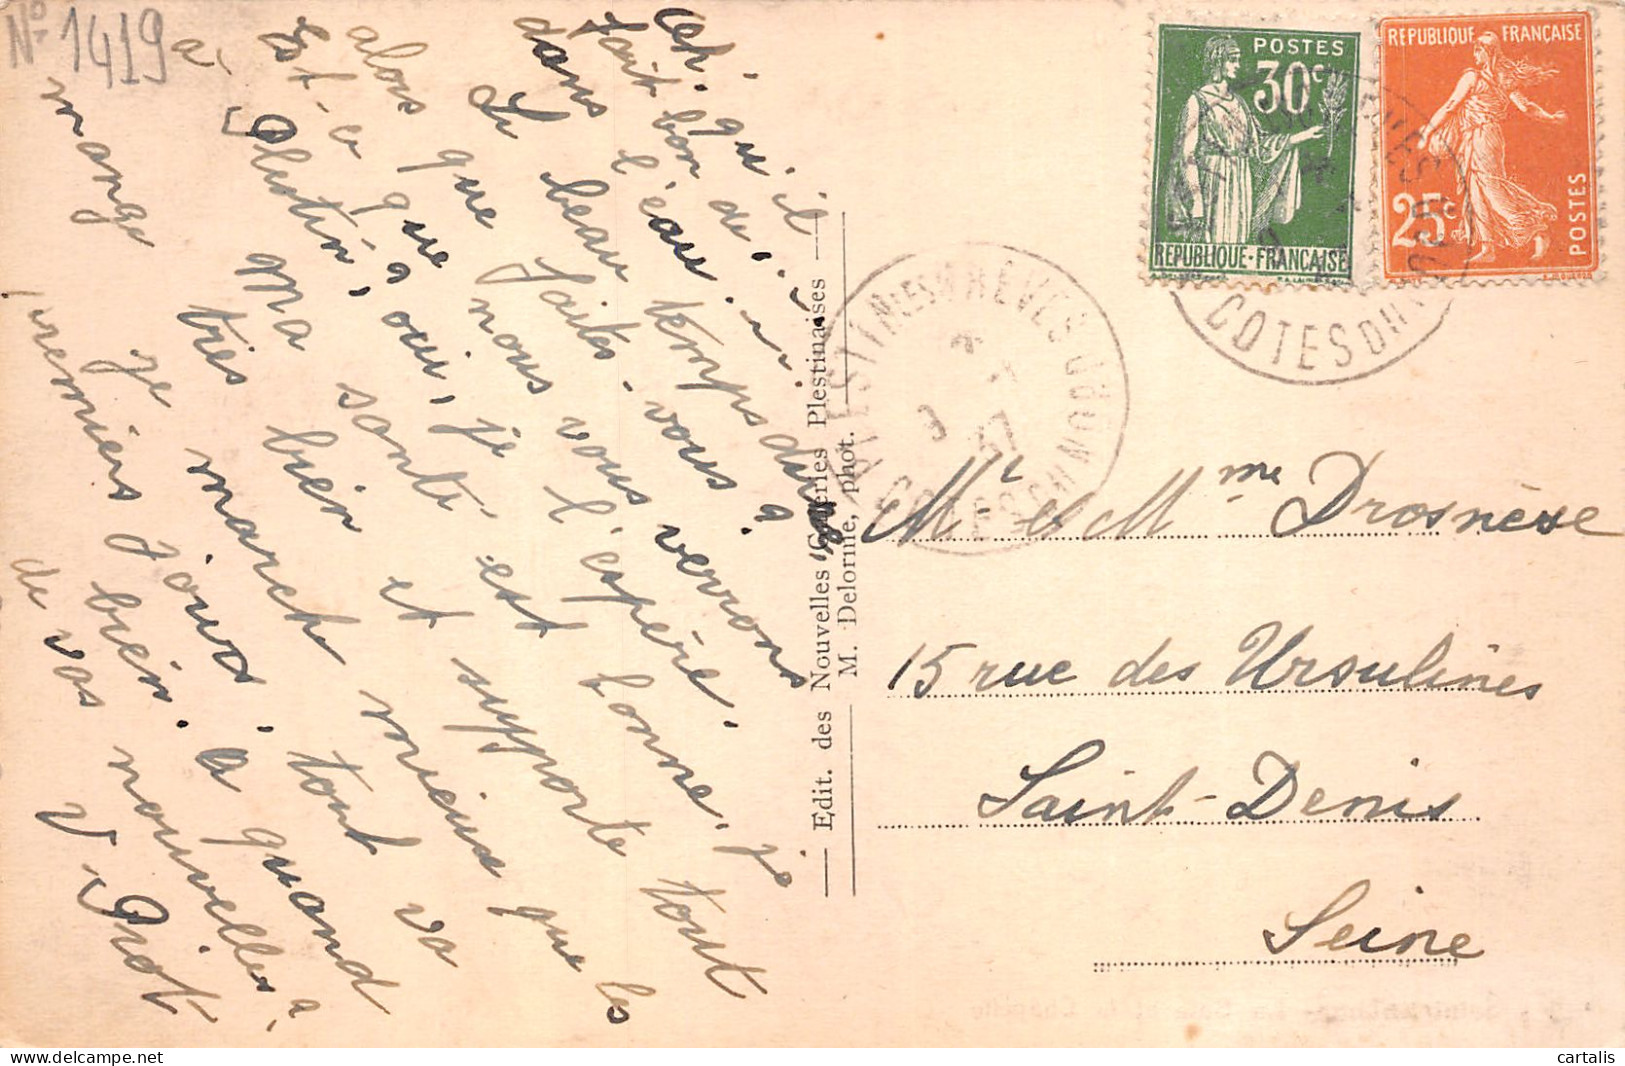 N° 1419
ceh! qu'il
fait bon de
dans l'eau
Le beau temps dure
alors que faites-vous à
Est-ce que nous vous verrons
à Plestin, oui, je l'espère.
ma santé est bonne, je
mange très bien et supporte tout
je marche mieux que les
premiers jours, tout va
bien. à quand
de vos nouvelles à
V. Priot
Edit. des Nouvelles Galeries Plestinaises
M. Delorme, phot.
POSTES
30c
REPUBLIQUE-FRANÇAISE
REPUBLIQUE FRANÇAISE
25c
POSTES
PLESTIN-LES-GREVES
COTES DU NORD
9 -7
37
COTES DU NORD
Mr et Mme Drosnèse
15 rue des Ursulines
Saint-Denis
Seine
cartalis